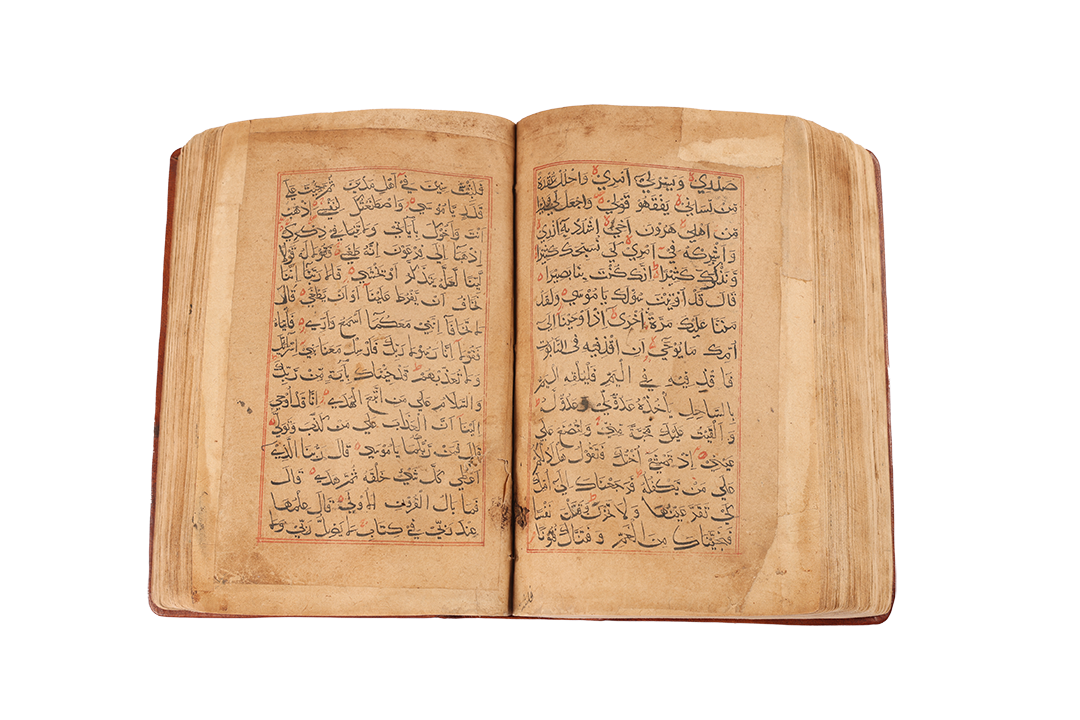 صَدْرِي وَيَسِّرْ لِي أَمْرِي وَاحْلُلْ عُقْدَةً
مِن لِسَانِي يَفْقَهُو قَوْلِي وَاجْعَل لِي وَزِيرًا
مِن أَهْلِي هَرُونَ أَخِي اشْدُدْ بِهِ أَزْرِي
وَأَشْرِكْهُ فِي أَمْرِي كَي نُسَبِّحَكَ كَثِيرًا
وَنَذْكُرَكَ كَثِيرًا إِنَّكَ كُنْتَ بِنَا بَصِيرًا
قَالَ قَدْ أُوتِيتَ سُؤْلَكَ يَا مُوسَي وَلَقَدْ
مَنَنَّا عَلَيْكَ مَرَّةً أُخْرَي إِذْ أَوْحَيْنَا إِلَي
أُمِّكَ مَا يُوحَي أَن اقْذِفِيهِ فِي التَّابُوتِ
فَاقْذِفِيهِ فِي الْيَمِّ فَلْيُلْقِهِ الْيَمُّ
بِالسَّاحِلِ يَأْخُذْهُ عَدُوٌّ لِي وَعَدُوٌّ لَهُ
وَأَلْقَيْتُ عَلَيْكَ مَحَبَّةً مِنِّي وَلِتُصْنَعَ عَلَي
عَيْنِي إِذْ تَمْشِي أُخْتُكَ فَتَقُولُ هَلْ أَدُلُّكُم
عَلَي مَن يَكْفُلُهُ فَرَجَعْنَاكَ إِلَي أُمِّكَ
كَي تَقَرَّ عَيْنُهَا وَلَا تَحْزَنَ وَقَتَلْتَ نَفْسًا
فَنَجَّيْنَاكَ مِنَ الْغَمِّ وَفَتَنَّاكَ فُتُونًا
فَلَبِثْتَ سِنِينَ فِي أَهْلِ مَدْيَنَ ثُمَّ جِئْتَ عَلَي
قَدَرٍ يَا مُوسَي وَاصْطَنَعْتُكَ لِنَفْسِي اذْهَبْ
أَنْتَ وَأَخُوكَ بِآيَاتِي وَلَا تَنِيَا فِي ذِكْرِي
اذْهَبَا إِلَي فِرْعَوْنَ إِنَّهُ طَغَي فَقُولَا لَهُ قَوْلًا
لَيِّنًا لَعَلَّهُ يَتَذَكَّرُ أَوْ يَخْشَي قَالَا رَبَّنَا إِنَّنَا
نَخَافُ أَن يَفْرُطَ عَلَيْنَا أَوْ أَن يَطْغَي قَالَ
لَا تَخَافَا إِنَّنِي مَعَكُمَا أَسْمَعُ وَأَرَي فَأْتِيَاهُ
فَقُولَا إِنَّا رَسُولَا رَبِّكَ فَأَرْسِلْ مَعَنَا بَنِي إِسْرَائِيلَ
وَلَا تُعَذِّبْهُمْ قَدْ جِئْنَاكَ بِآيَةٍ مِن رَبِّكَ
وَالسَّلَامُ عَلَي مَنِ اتَّبَعَ الْهُدَي إِنَّا قَدْ أُوحِيَ
إِلَيْنَا أَنَّ الْعَذَابَ عَلَي مَن كَذَّبَ وَتَوَلَّي
قَالَ فَمَن رَبُّكُمَا يَا مُوسَي قَالَ رَبُّنَا الَّذِي
أَعْطَي كُلَّ شَيْءٍ خَلْقَهُ ثُمَّ هَدَي قَالَ
فَمَا بَالُ الْقُرُونِ الْأُولَي قَالَ عِلْمُهَا
عِنْدَ رَبِّي فِي كِتَابٍ لَا يَضِلُّ رَبِّي وَلَا